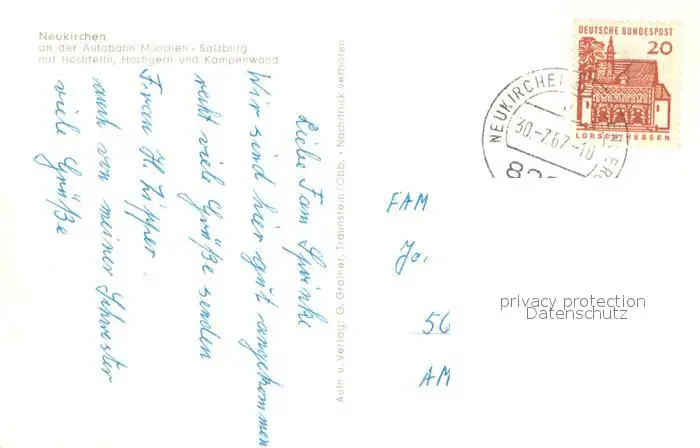 Neukirchen
an der Autobahn München - Salzburg
mit Hochfelln, Hochgern und Kampenwand
DEUTSCHE BUNDESPOST
20
LORSCH/HESSEN
NEUKIRCHEN
30.-7.67.-10
Liebe Fam
Wir sind hier gut angekommen
recht viel Grüße senden
Frau H. Lipper.
auch von meiner Schwester
viele Grüße
Auf. u. Verlag: G. Grainer, Traunstein/Obb. - Nachdruck verboten
FAM
Jo.
56
AM
privacy protection
Datenschutz